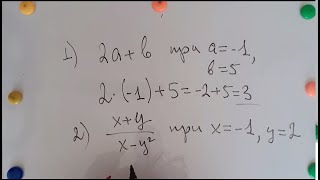 1) 2a+b при a=-1,
b=5
2·(-1)+5=-2+5=3
2) x+y / x-y² при x=-1, y=2